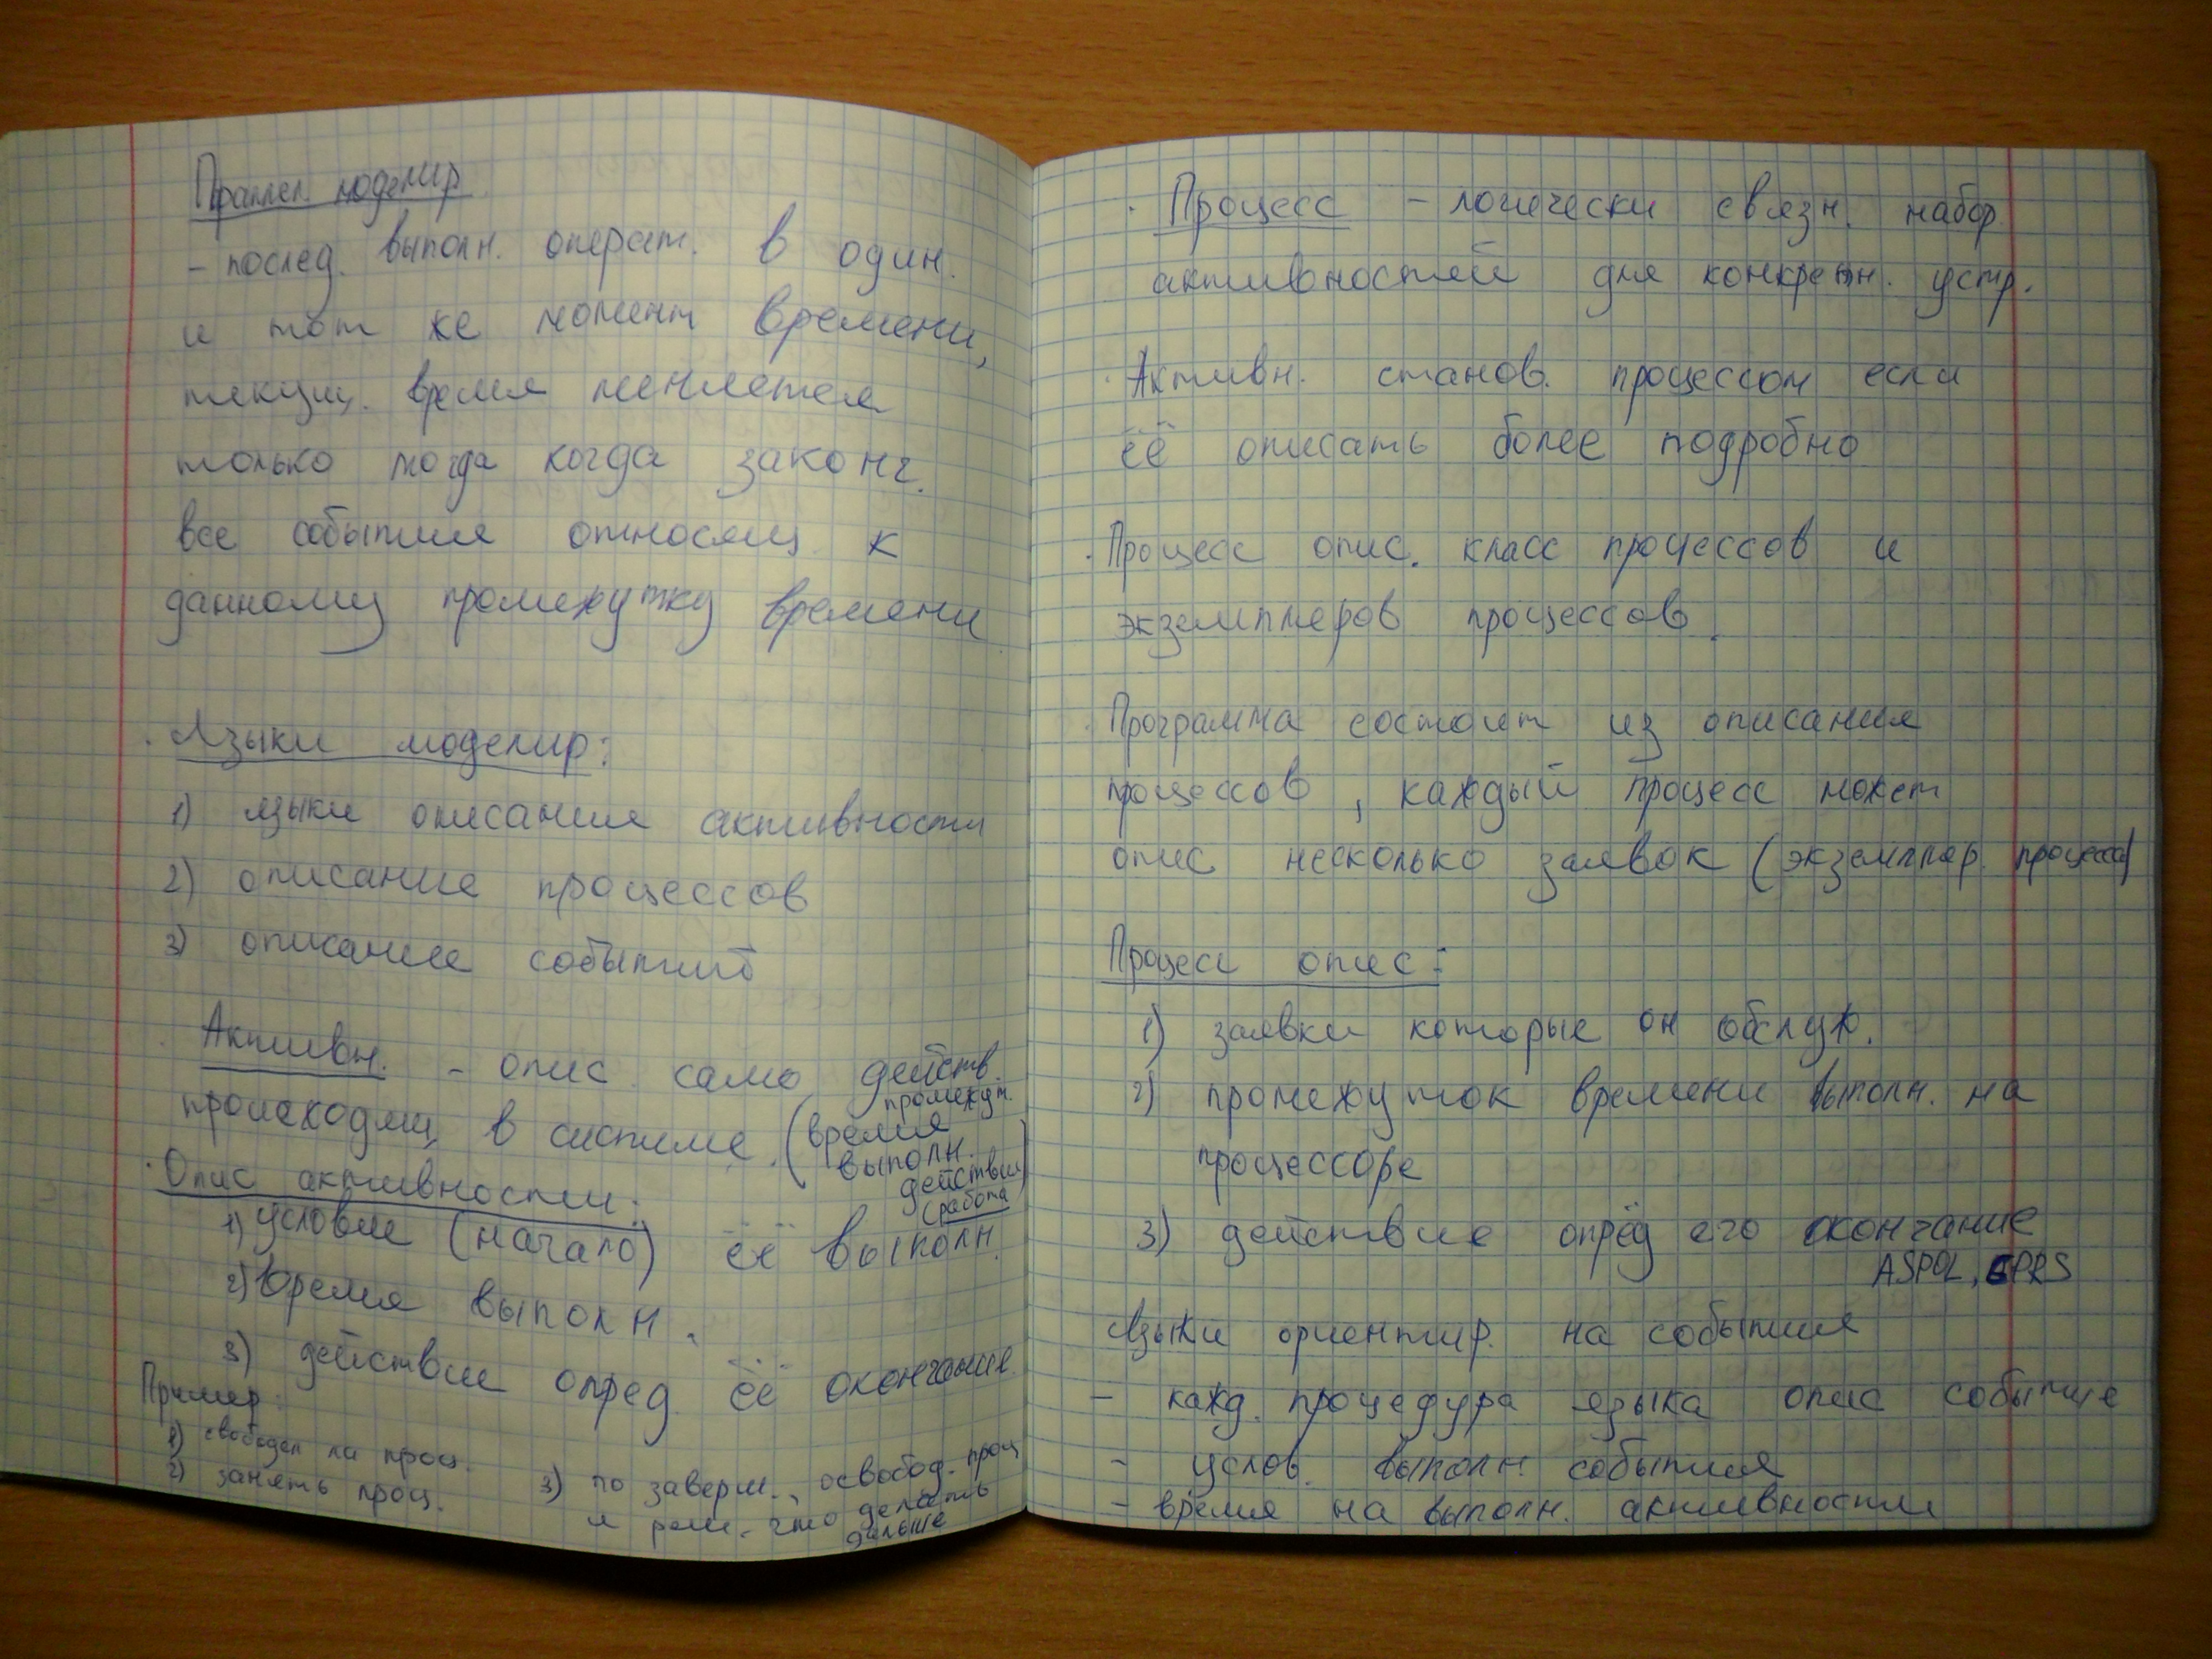 Праллел. моделир
- послед. выполн. операт. в один.
и тот же момент времени,
текущ. время меняется
только тогда когда законч.
все события относящ. к
данному промежутку времени
· Языки моделир:
1) языки описания активности
2) описание процессов
3) описание событий
Активн. - опис. само действ.
происходящ. в системе. (время промежут.
выполн.
действия)
(работа
· Опис активности:
1) условие (начало) её выполн.
2) время выполн.
3) действие опред. её окончание.
Пример:
1) свободен ли проц.
2) занять проц.
3) по заверш., освобод. проц
и реш. что делать
дальше
· Процесс - логически связн. набор
активностей для конкретн. устр.
· Активн. станов. процессом если
её описать более подробно
· Процесс опис. класс процессов и
экземпляров процессов.
· Программа состоит из описания
процессов, каждый процесс может
опис несколько заявок (экземпляр. процесса)
Процесс опис:
1) заявки которые он обслуж.
2) промежуток времени выполн. на
процессоре
3) действие опред его окончание
ASPOL, GPRS
Языки ориентир. на события
- кажд. процедура языка опис событие
- услов. выполн. события
- время на выполн. активности